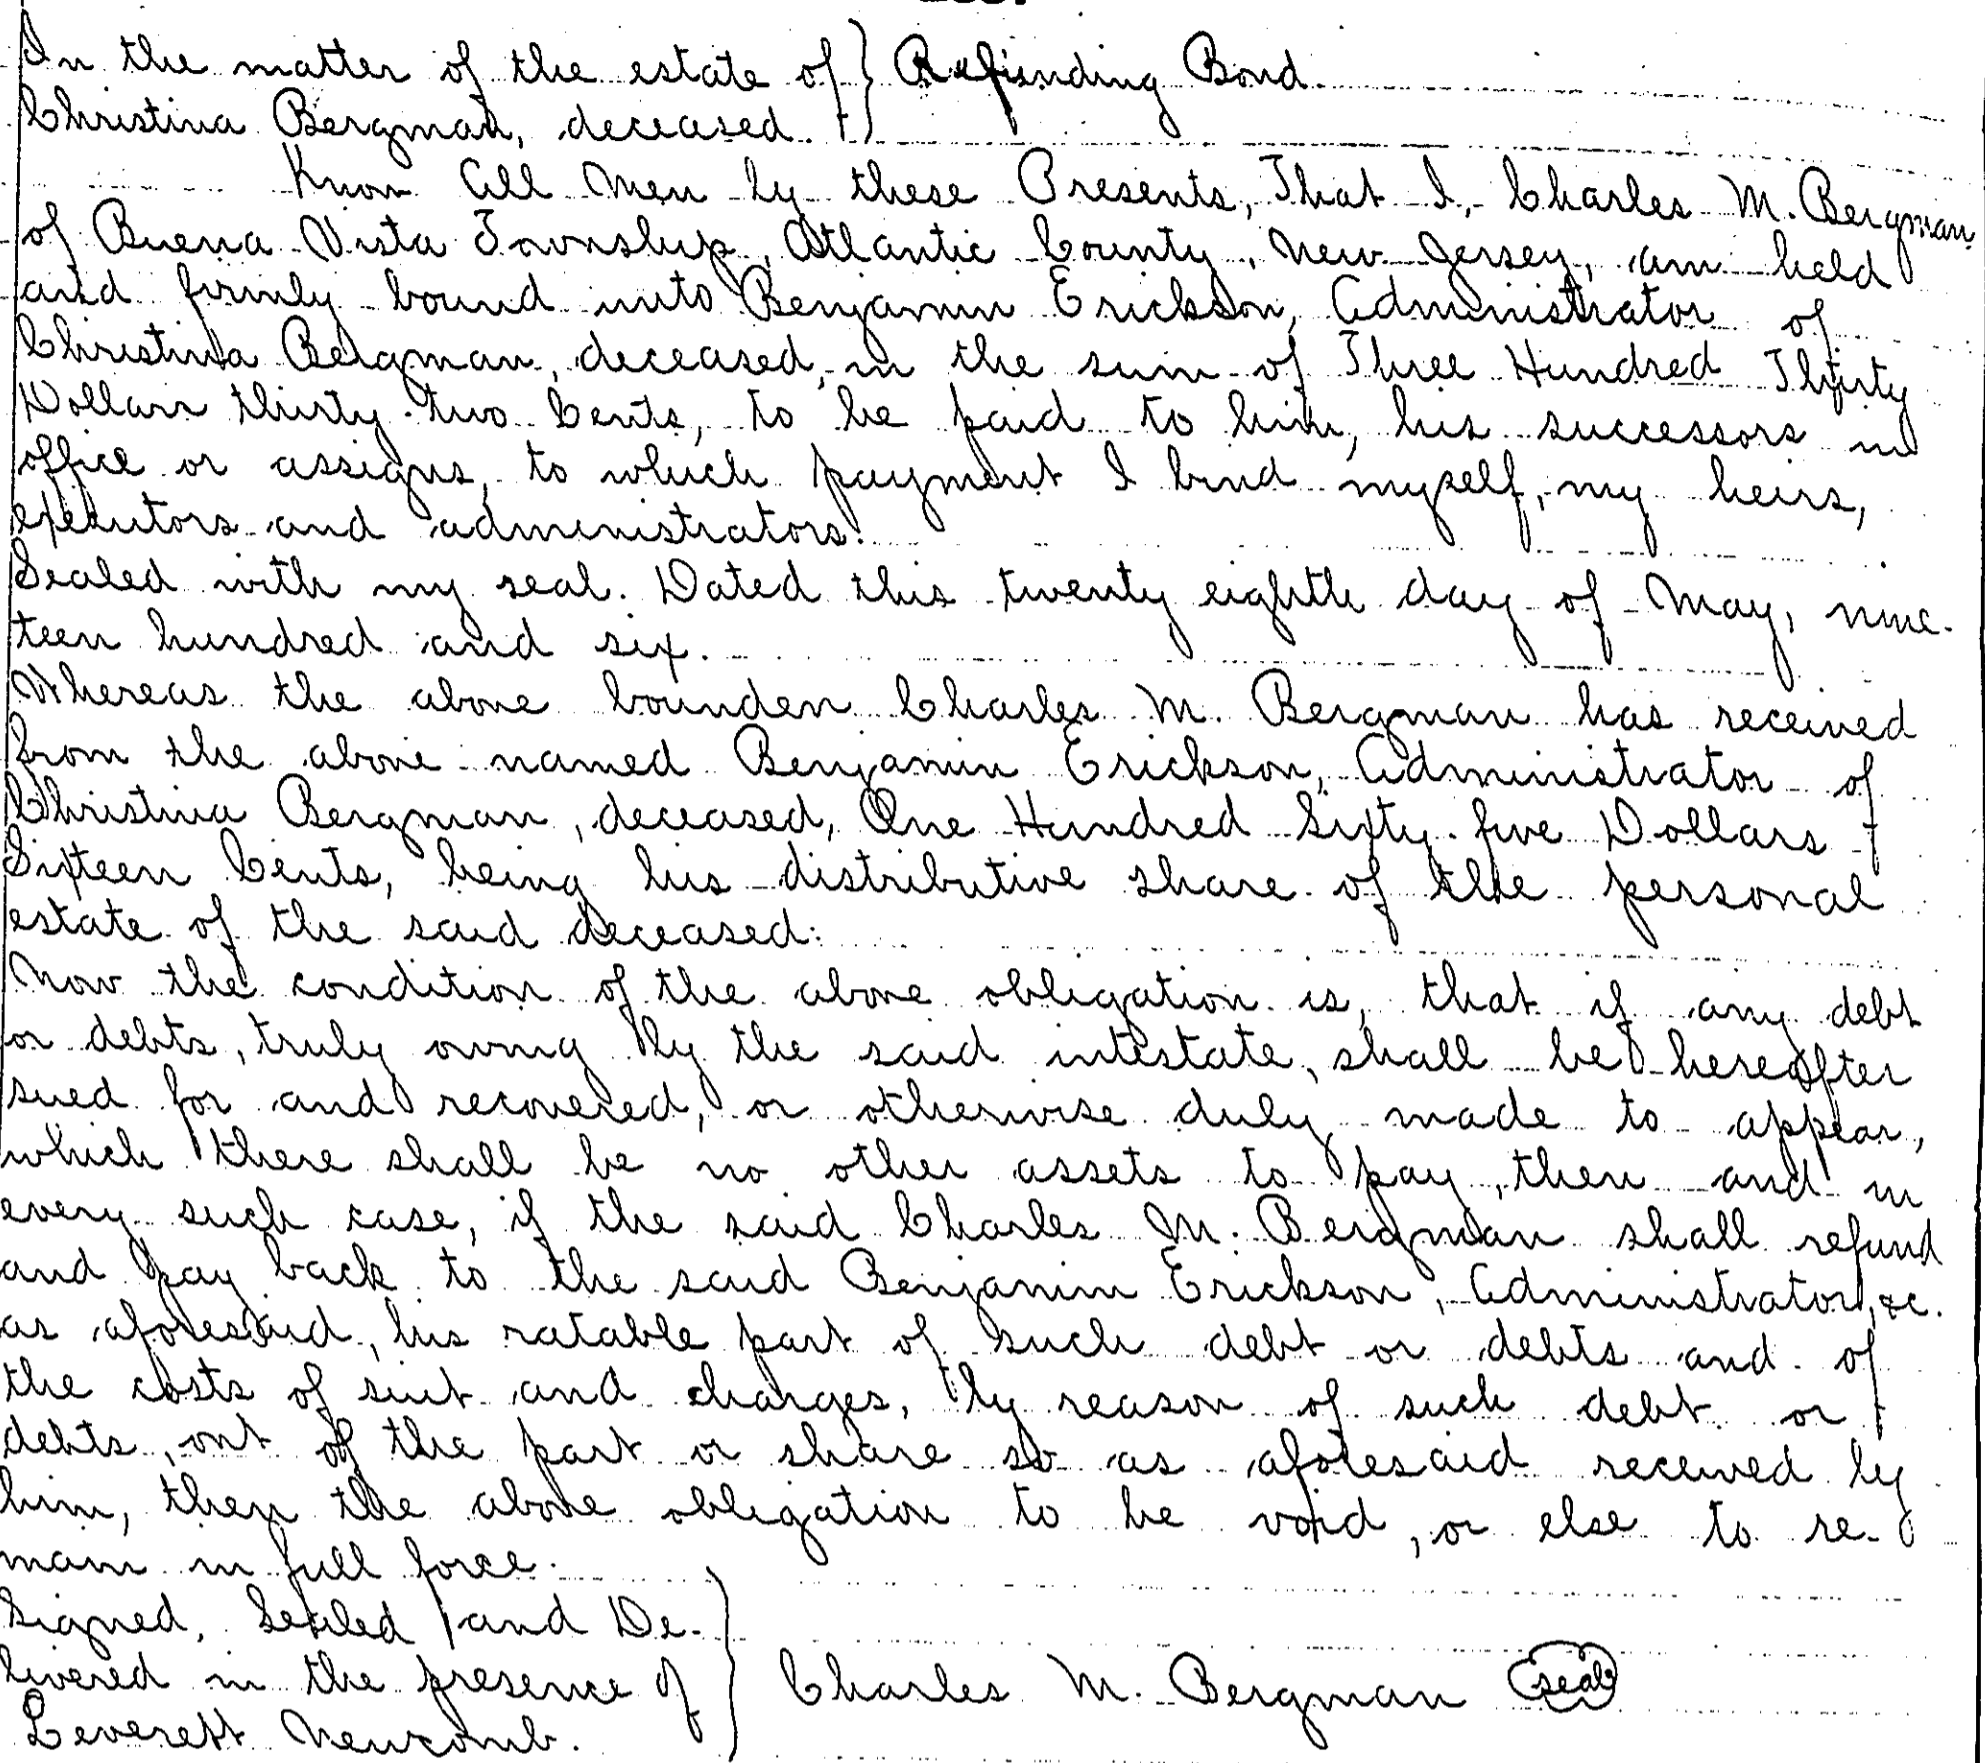 In the matter of the estate of } Refunding Bond.
Christina Bergman, deceased.
Know All Men by these Presents, That I, Charles M. Bergman
of Buena Vista Township, Atlantic County, New Jersey, am held
and firmly bound unto Benjamin Erickson, Administrator of
Christina Bergman, deceased, in the sum of Three Hundred Thirty
Dollars thirty-two Cents, to be paid to him, his successors in
office or assigns, to which payment I bind myself, my heirs,
executors and administrators.
Sealed with my seal. Dated this twenty eighth day of May, nine-
teen hundred and six.
Whereas the above bounden Charles M. Bergman has received
from the above named Benjamin Erickson, Administrator of
Christina Bergman, deceased, One Hundred Sixty-five Dollars
Sixteen Cents, being his distributive share of the personal
estate of the said deceased:
Now the condition of the above obligation is, that if any debt
or debts, truly owing by the said intestate, shall be hereafter
sued for and recovered, or otherwise duly made to appear,
which there shall be no other assets to pay, then and in
every such case, if the said Charles M. Bergman shall refund
and pay back to the said Benjamin Erickson, Administrator, &c.
as aforesaid, his ratable part of such debt or debts and of
the costs of suit and charges, by reason of such debt or
debts, out of the part or share so as aforesaid received by
him, then the above obligation to be void, or else to re-
main in full force.
Signed, Sealed and De-
livered in the presence of } Charles M. Bergman (seal)
Leverett Newcomb.